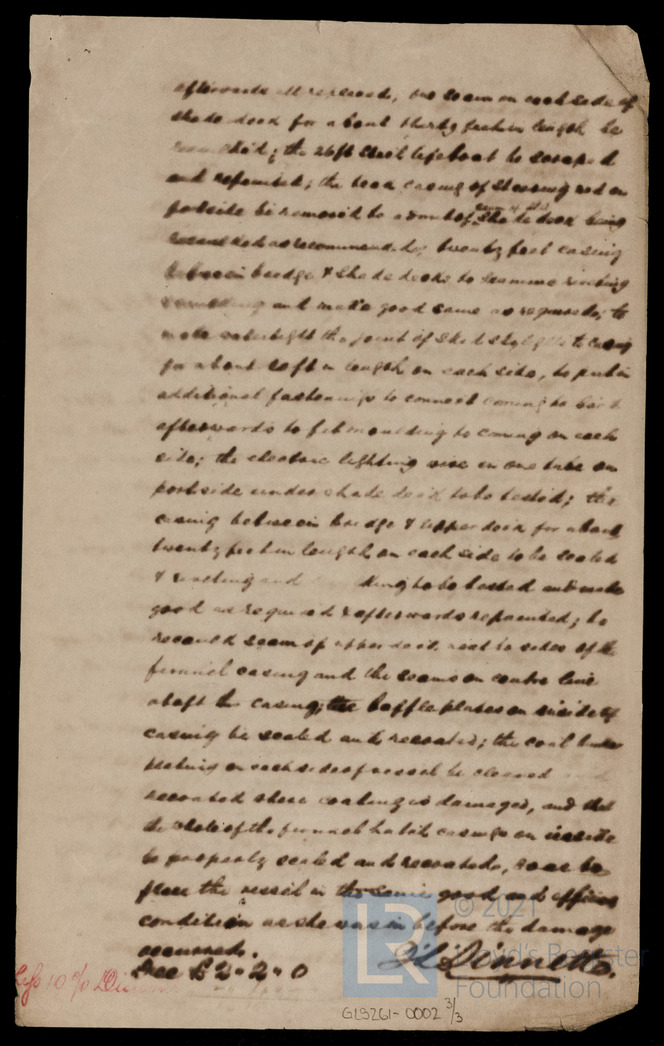 afterwards all replaced, one seam on each side of
shade deck for about thirty feet in length be
the 26ft steel lifeboat be scraped
and repainted; the teak casing of steering rod on
portside be removed to shade deck being
recaulked as recommended; twenty feet casing
between bridge & shade decks to examine
and make good same as required; to
make watertight the joint of to casing
for about 20ft in length on each side, to put in
additional fastenings to connect coming to
afterwards to fit moulding to coming on each
side; the electric lighting wire in one tube on
port side under shade deck to be tested; the
casing between bridge & upper deck for about
twenty feet in length, on each side to be scaled
& riveting and to be tested and made
good as required & afterwards repainted; to
recaulk seam of upper deck next to sides of the
funnel casing and the seams on centre line
abaft the casing; the baffle plates on inside of
casing be scaled and recoated; the coal
plating on each side of vessel be cleaned and
recoated where coating is damaged, and that
the whole of the funnel hatch casings on inside
be properly scaled and recoated, so as to
place the vessel in the same good and efficient
condition as she was in before the damage
occurred.
Fee £2-2-0
Dinnett.
Less 10%
© 2021
LR
Lloyd's Register
Foundation
GLS261-0002 3/3